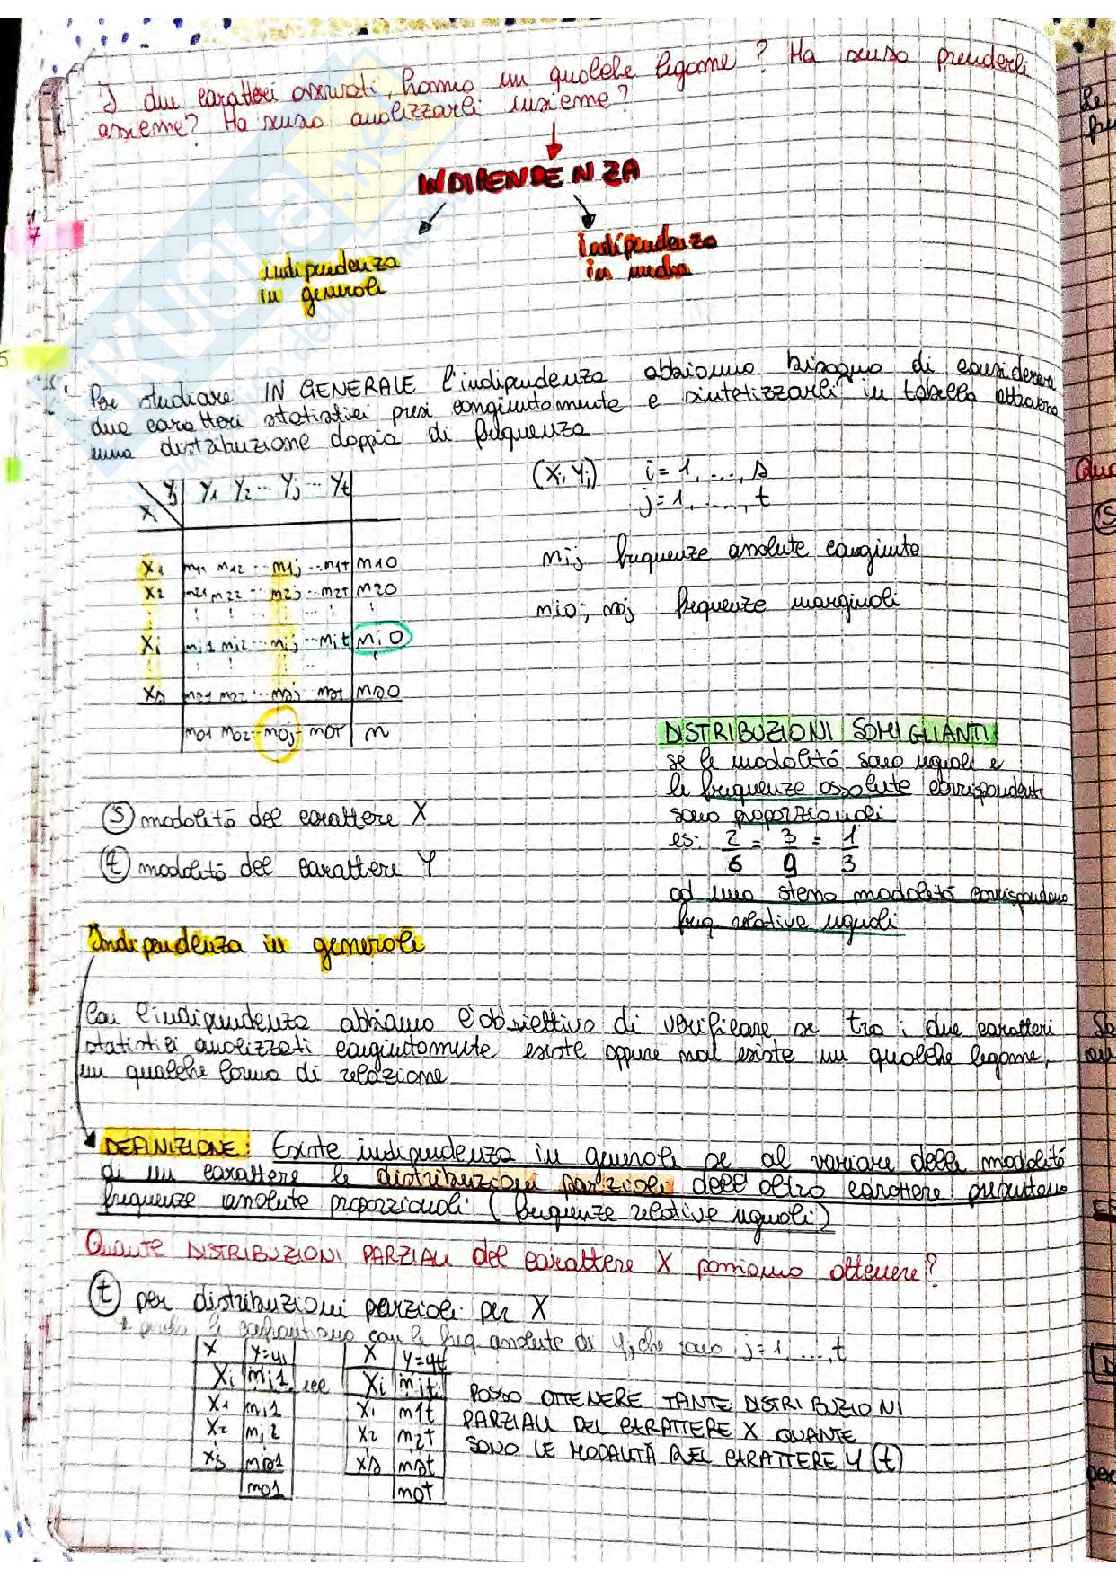 I due caratteri osservati, hanno un qualche legame? Ha senso prenderli
assieme? Ha senso analizzarli insieme?
INDIPENDENZA
indipendenza
in generale
indipendenza
in media
Per studiare IN GENERALE l'indipendenza abbiamo bisogno di considerare
due caratteri statistici presi congiuntamente e sintetizzarli in tabella attraverso
una distribuzione doppia di frequenza
X Yj Y1 Y2 ... Yj ... Yt
X1 n11 n12 ... n1j ... n1t n10
X2 n21 n22 ... n2j ... n2t n20
Xi ni1 ni2 ... nij ... nit ni0
Xs ns1 ns2 ... nsj nst ns0
n01 n02 ... n0j ... n0t n
(Xi, Yj) i = 1, ..., s
j = 1, ..., t
nij frequenze assolute congiunte
ni0; n0j frequenze marginali
DISTRIBUZIONI SOMIGLIANTI
se le modalità sono uguali e
le frequenze assolute corrispondenti
sono proporzionali
es: 2/6 = 3/9 = 1/3
ad una stessa modalità corrispondono
freq relative uguali
(S) modalità del carattere X
(t) modalità del carattere Y
Indipendenza in generale
Con l'indipendenza abbiamo l'obiettivo di verificare se tra i due caratteri
statistici analizzati congiuntamente esiste oppure non esiste un qualche legame,
un qualche forma di relazione
DEFINIZIONE: Esiste indipendenza in generale se al variare delle modalità
di un carattere le distribuzioni parziali dell'altro carattere presentano
frequenze assolute proporzionali (frequenze relative uguali)
Quante DISTRIBUZIONI PARZIALI del carattere X possiamo ottenere?
(t) per distribuzioni parziali per X
perché si confrontano con le freq. assolute di Y, che sono j = 1, ..., t
X Y=y1 X Y=yt
Xi ni1 Xi nit
X1 ni1 X1 n1t
X2 ni2 X2 n2t
Xs ns1 Xs nst
n01 n0t
POSSO OTTENERE TANTE DISTRIBUZIONI
PARZIALI DEL CARATTERE X QUANTE
SONO LE MODALITÀ DEL CARATTERE Y (t)